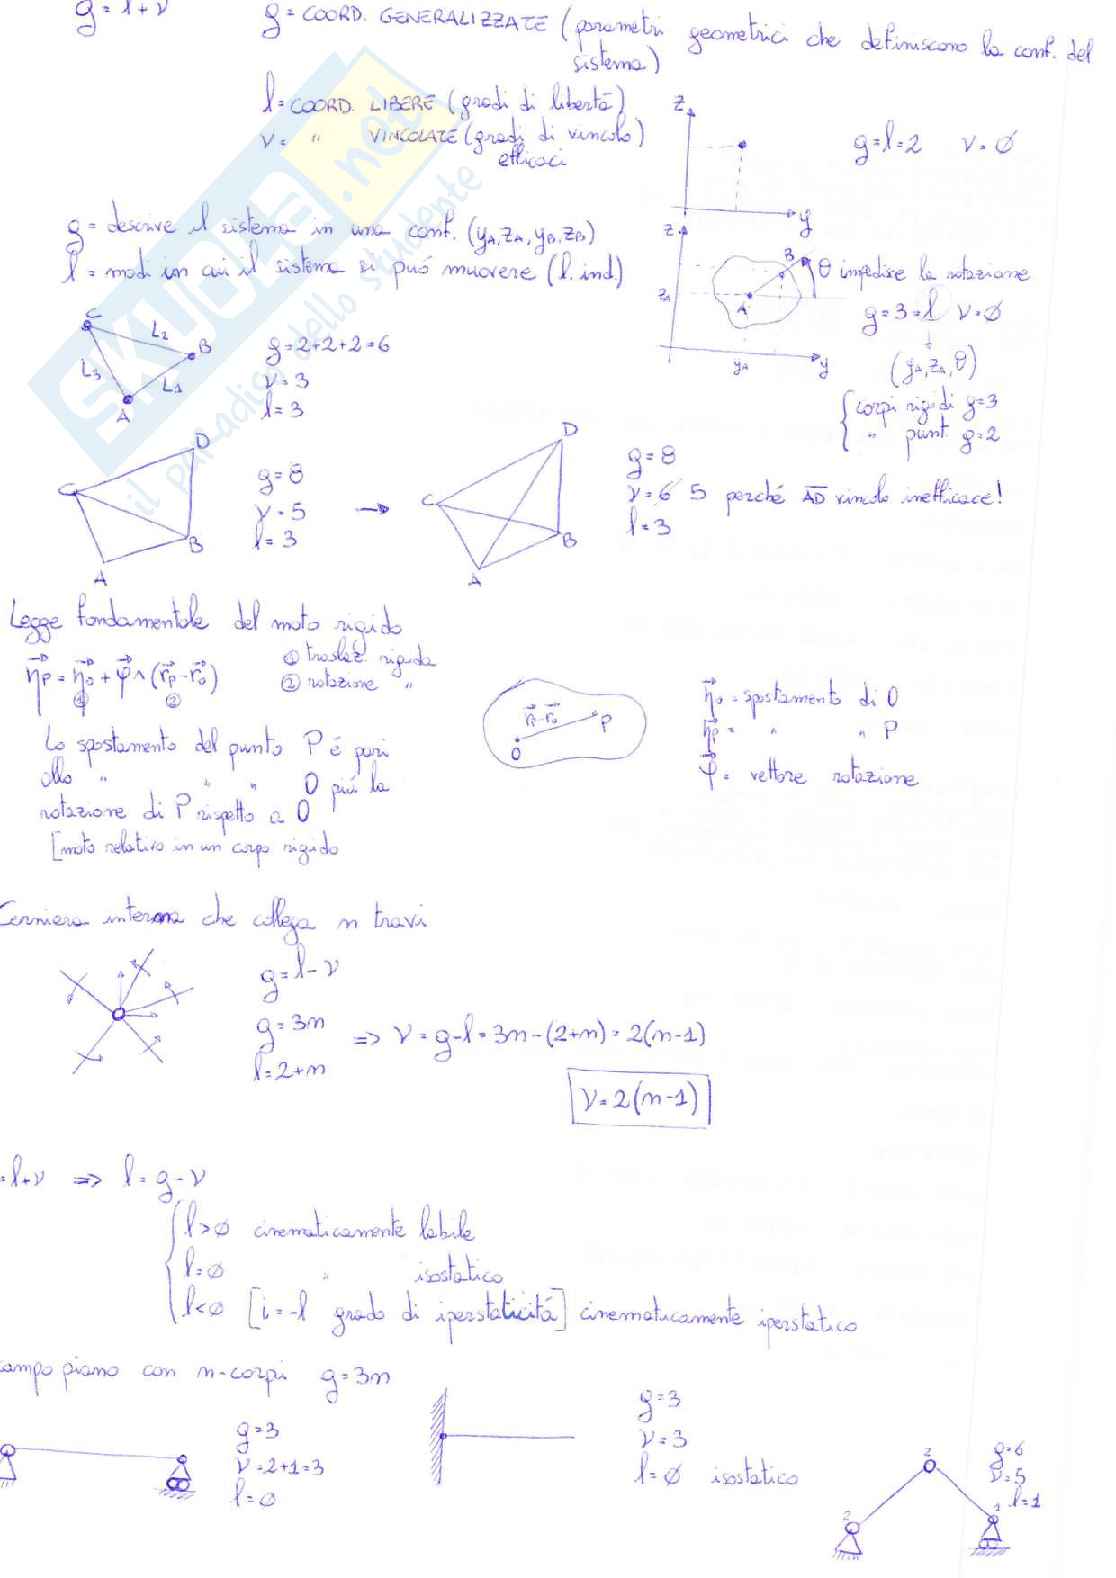 g = l + ν
g = COORD. GENERALIZZATE (parametri geometrici che definiscono la conf. del sistema)
l = COORD. LIBERE (gradi di libertà)
ν = " VINCOLATE (gradi di vincolo) efficaci
z
y
g=l=2 ν=∅
g = descrive il sistema in una conf. (yA, zA, yB, zB)
l = modi in cui il sistema si può muovere (l. ind)
z
zA
A
B
θ impedire la rotazione
yA
y
g=3=l ν=∅
(yA, zA, θ)
{ corpi rigidi g=3
" punt. g=2
C
L2
B
L3
L1
A
g=2+2+2=6
ν=3
l=3
D
C
B
A
g=8
ν=5
l=3
→
D
C
B
A
g=8
ν=6 5 perché AD vincolo inefficace!
l=3
Legge fondamentale del moto rigido
ηP = ηo + φ ∧ (rP - ro)
① ②
① traslaz. rigida
② rotazione "
rP - ro
P
O
ηo = spostamento di O
ηP = " " P
φ = vettore rotazione
Lo spostamento del punto P è pari
allo " " " O più la
rotazione di P rispetto a O
[moto relativo in un corpo rigido
Cerniera interna che collega n travi
g=l-ν
g=3n
l=2+n
=> ν=g-l=3n-(2+n)=2(n-1)
ν=2(n-1)
=l+ν => l=g-ν
{ l>∅ cinematicamente labile
l=∅ " isostatico
l<∅ [i=-l grado di iperstaticità] cinematicamente iperstatico
campo piano con n-corpi g=3n
g=3
ν=2+1=3
l=∅
g=3
ν=3
l=∅ isostatico
2
2
1
g=6
ν=5
l=1
SKUOLA.net
il paradiso dello studente